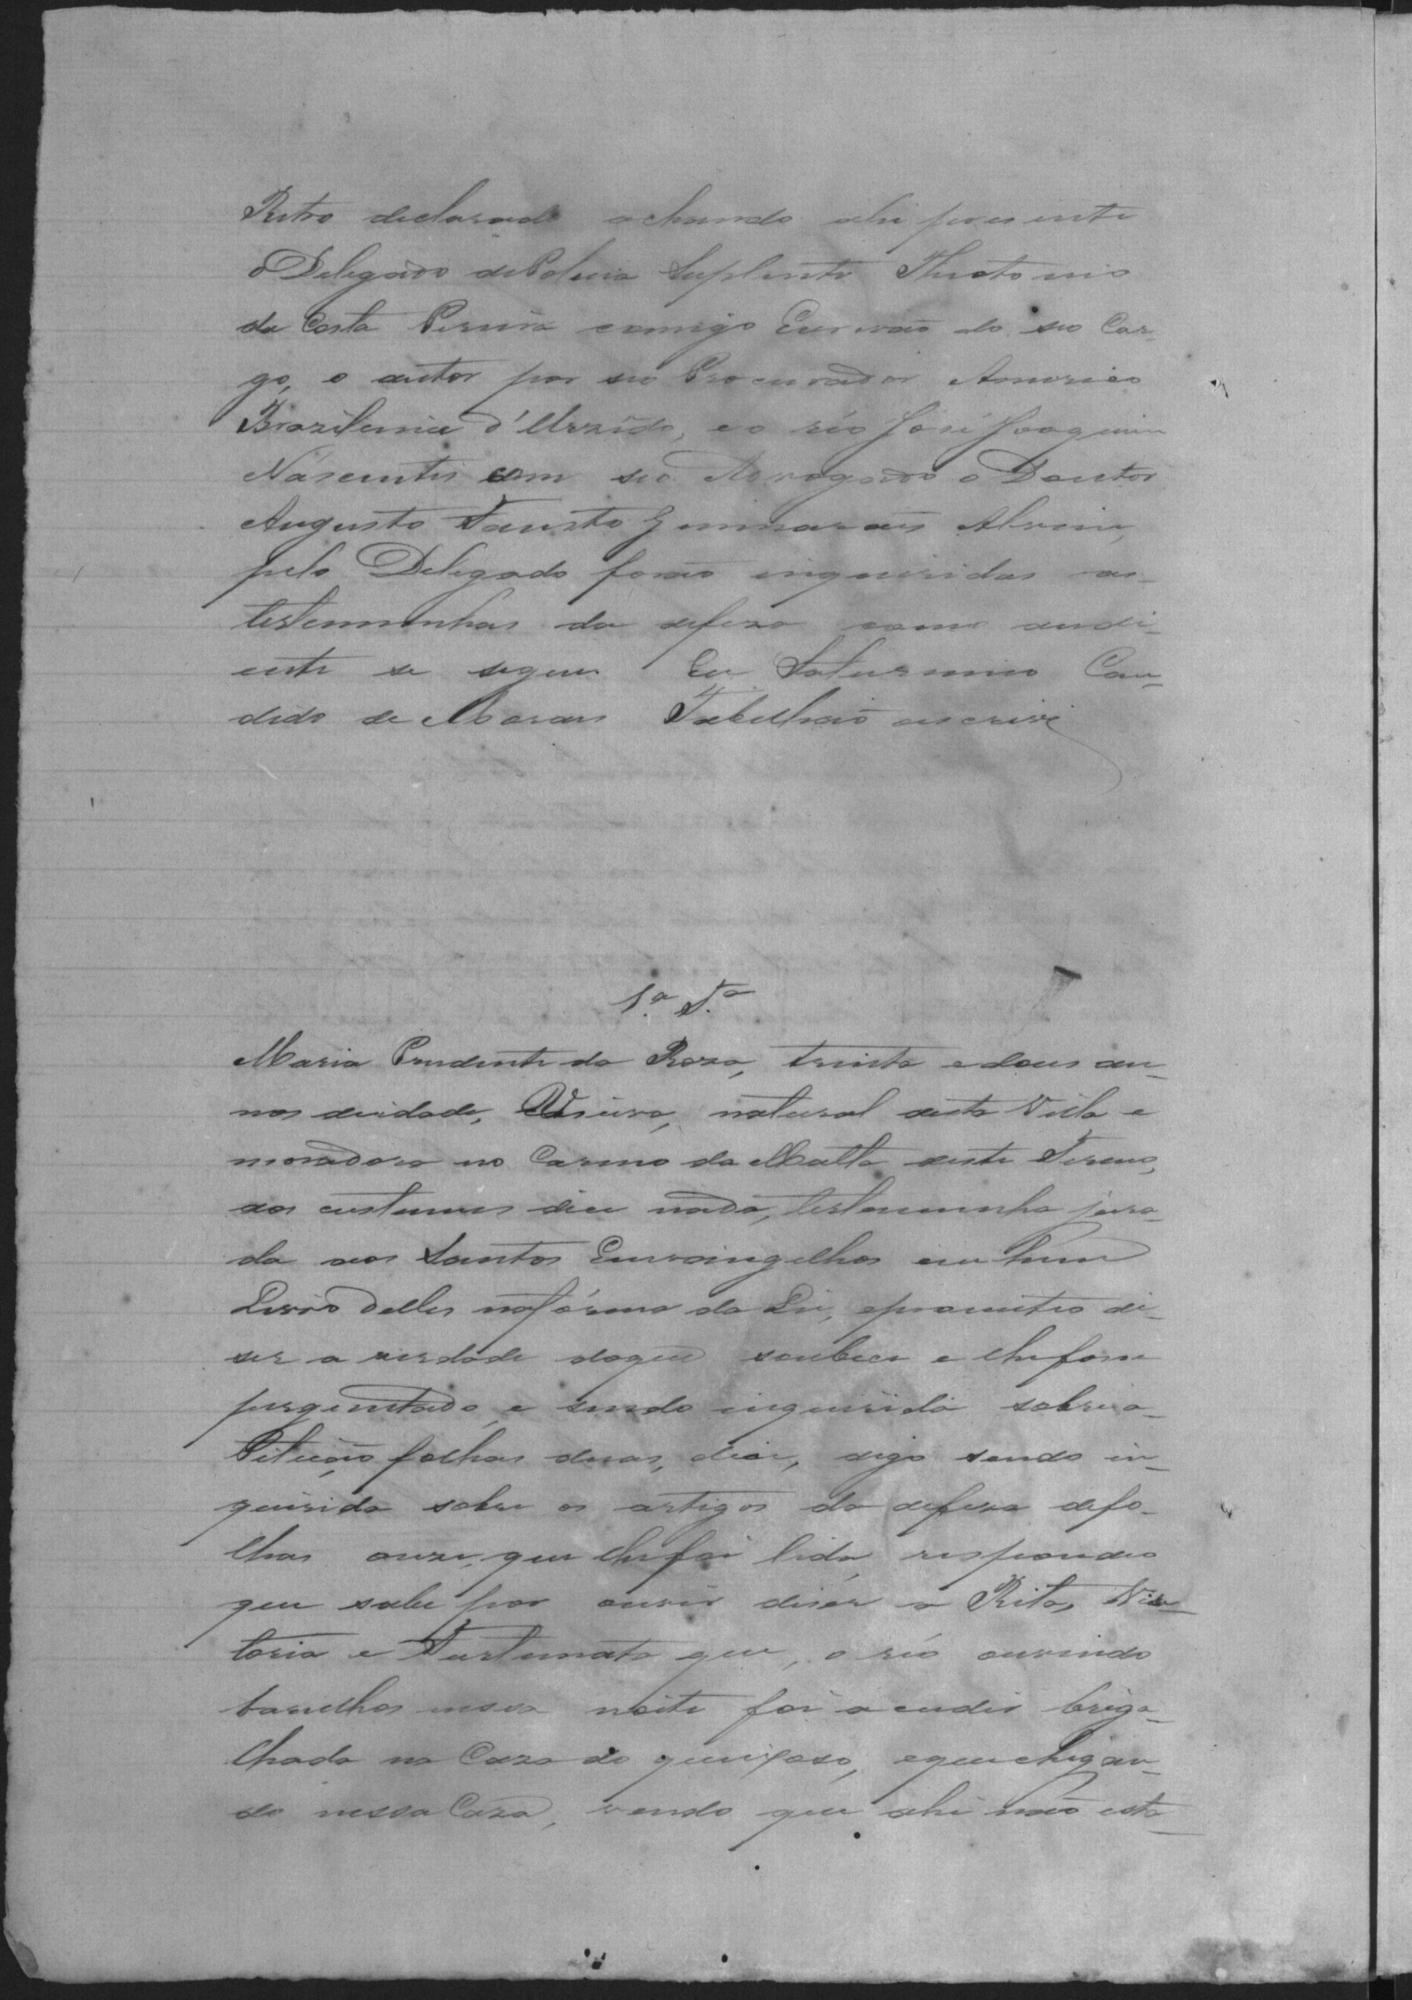 Retro declarado achando ahi presente
o Delegado de Policia Suplente Theotonio
da Costa Pereira comigo Escrivão do seo Car-
go, o autor por seo Procurador Americo
Braziliense d'Urzedo, e o réo José Joaquim
Nascentes com seo Advogado o Doutor
Augusto Fausto Guimarães Alvim,
pelo Delegado forão inqueridas as
testemunhas da defeza como
se segue Eu Saturnino Can-
dido de Moraes Tabelhião escrivi
1.ª T.ª
Maria Prudente da Roza, trinta e dous an-
nos de idade, Viuva, natural desta Villa e
moradora no Carmo da Matta deste Termo,
aos custumes dice nada, testemunha jura-
da aos Santos Evangelhos em hum
Livro delles na fórma da Lei, e prometeo di-
ser a verdade do que soubece e lhe fosse
perguntado, e sendo inquirida sobre a
Petição folhas duas, dice, digo sendo in-
quirida sobre os artigos da defeza de fo-
lhas onze, que lhe foi lida, respondeo
que sabe por ouvir diser a Rita, Vic-
toria e Furtunata que, o réo ouvindo
barulhos nessa noite foi acudir briga
lhada na Caza do queixoso, e que chegan-
do nessa Caza, vendo que ahi não esta-